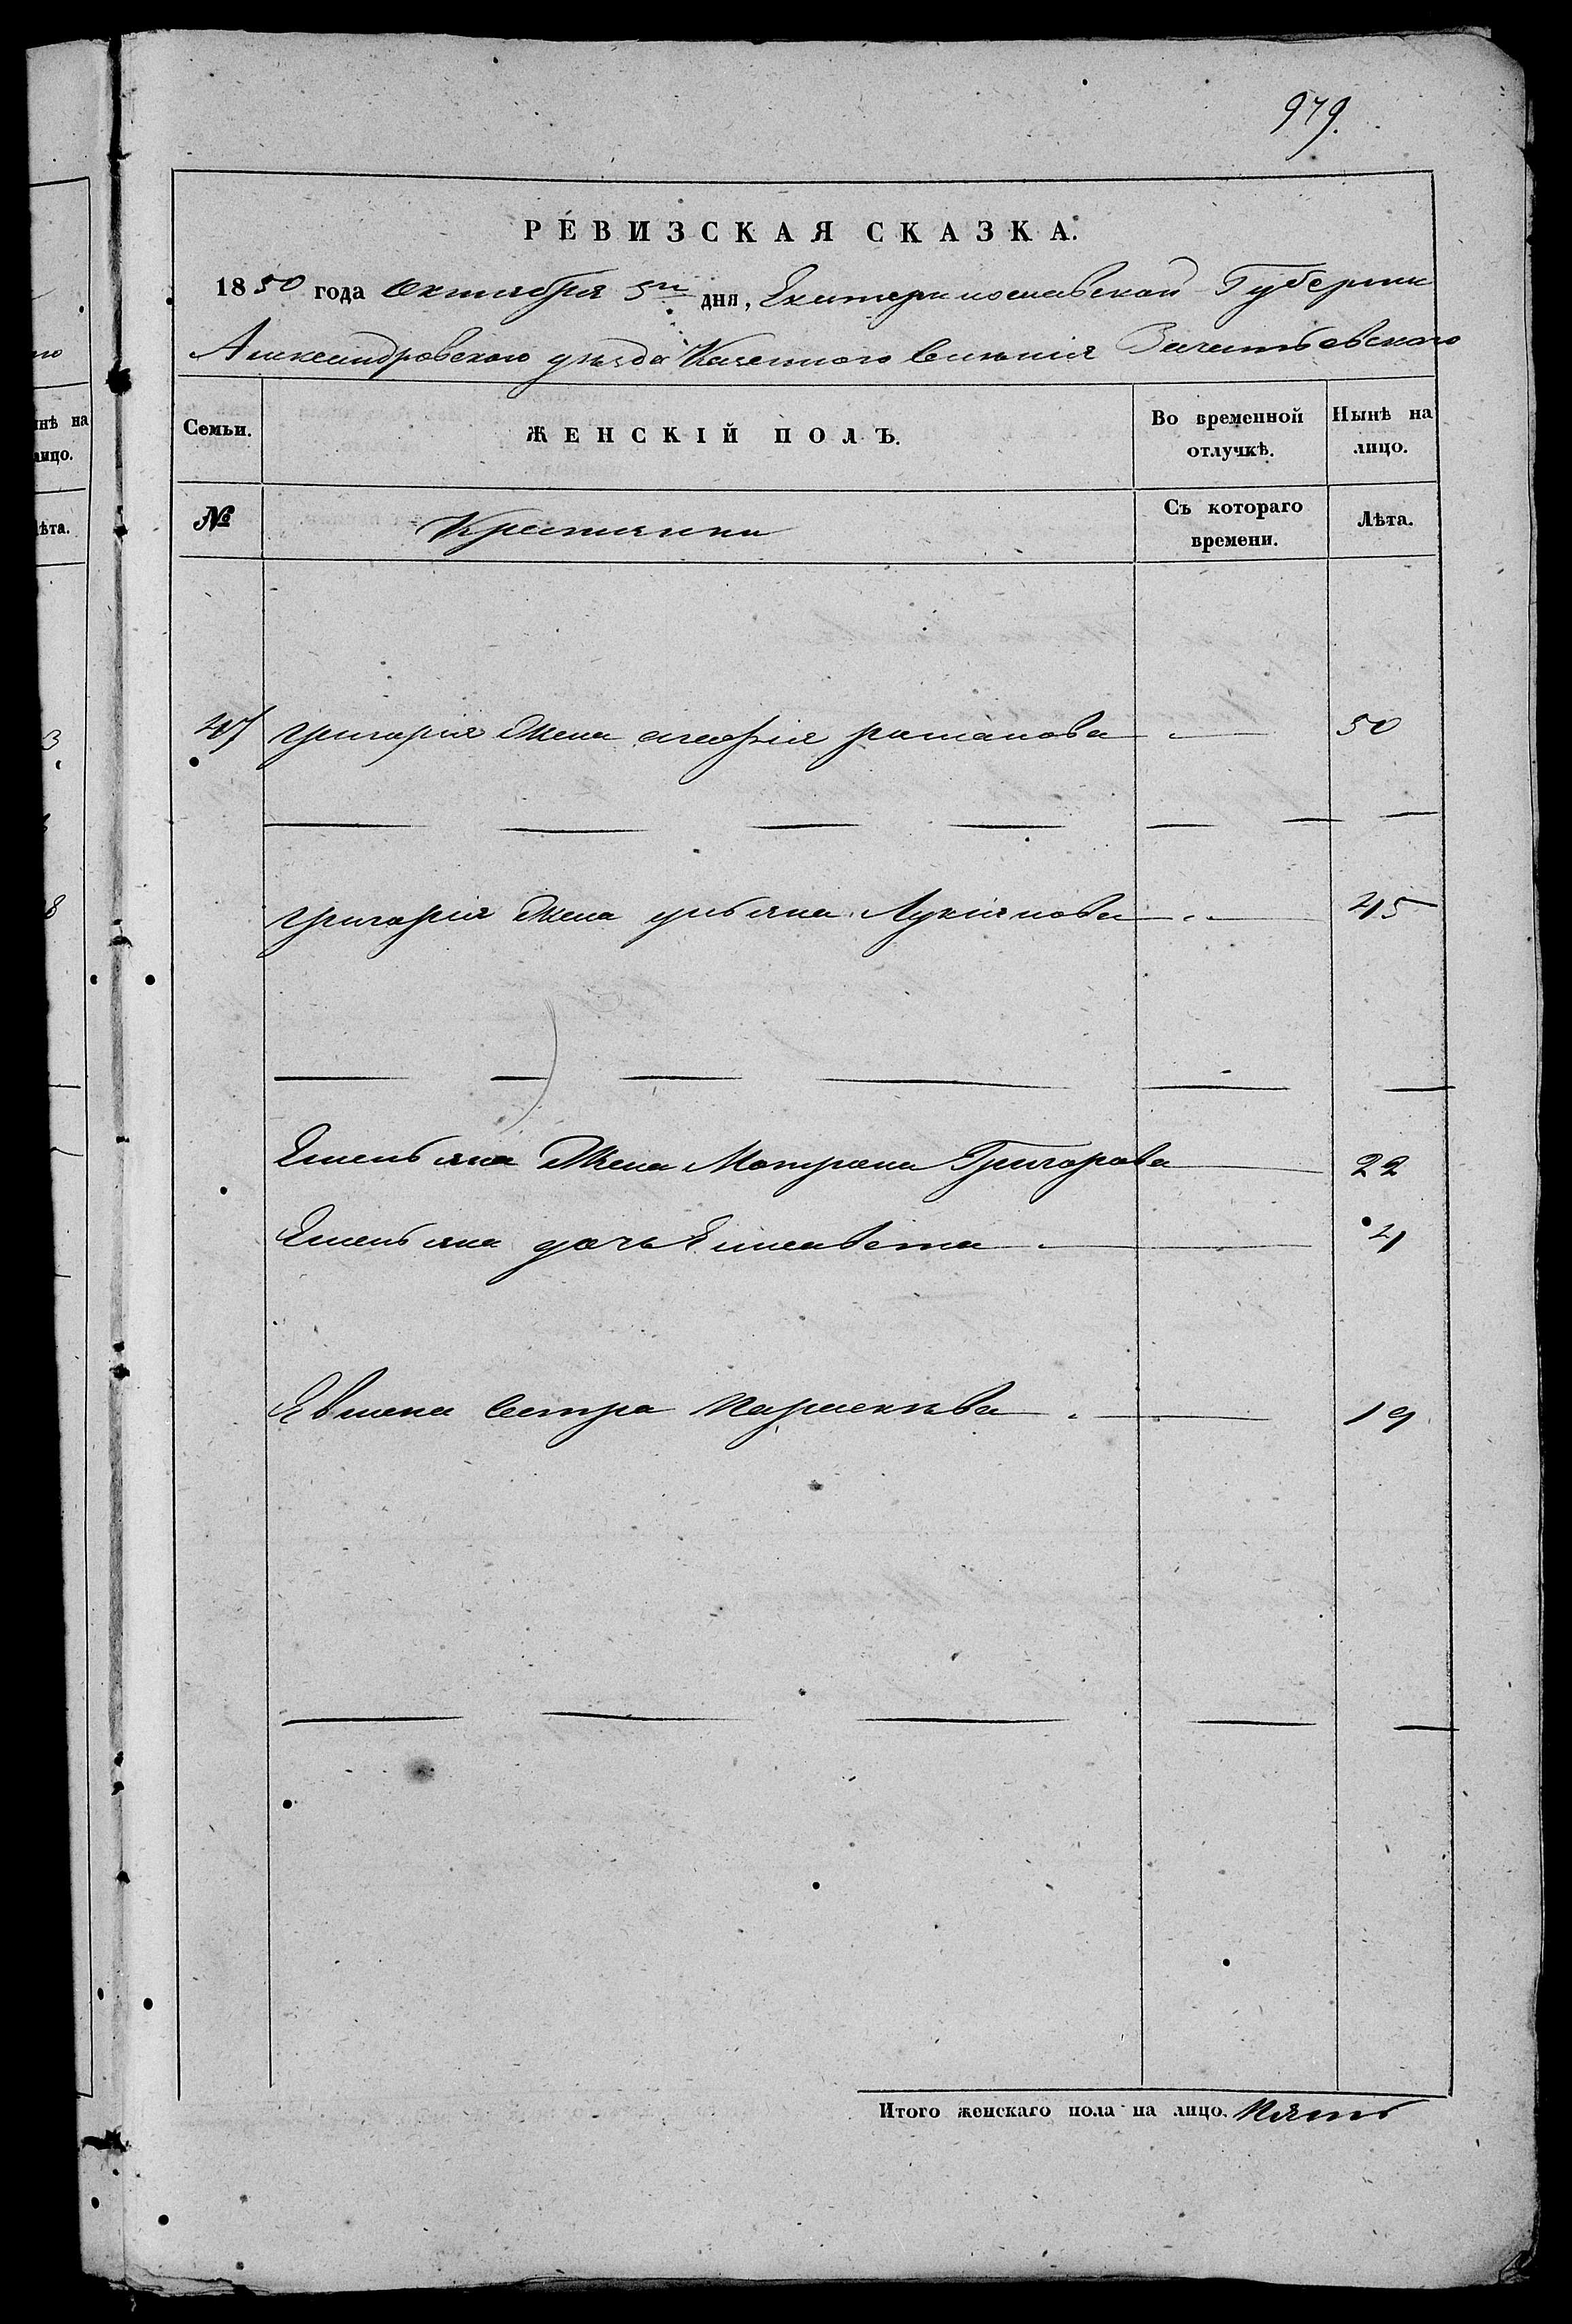 979.
РЕВИЗСКАЯ СКАЗКА.
1850 года Октября 5го дня, Екатеринославской Губернии
Александровского уезда Казенного селения Зачатьевского
Семьи. ЖЕНСКІЙ ПОЛЪ. Во временной отлучкѣ. Нынѣ на лицо.
№ Крестьянки Съ котораго времени. Лѣта.
47 григория Жена агафия раманова 50
григория Жена ульяна Лукиянова 45
Емельяна Жена Мотрона Григорова 22
Емельяна дочь Елисавета 4
Сестра Парасковя 19
Итого женскаго пола на лицо. Пять
нѣ на
лицо.
ѣта.
3
8